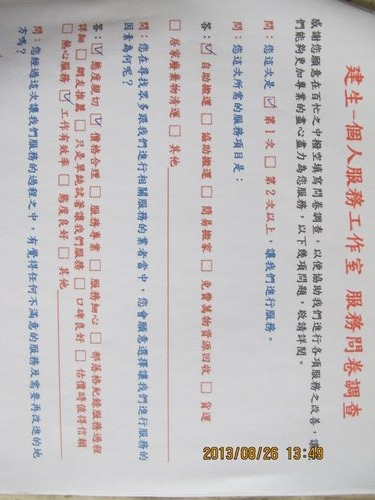 建生-個人服務工作室 服務問卷調查
感謝您願意在百忙之中撥空填寫問卷調查,以便協助我們進行各項服務之改善,讓
們能夠更加專業的盡心盡力為您服務,以下幾項問題,敬請詳閱。
問:您這次是 ☑ 第1次 □ 第2次以上,讓我們進行服務。
問:您這次所需的服務項目是:
答:☑ 自助搬運 □ 協助搬運 □ 簡易搬家 □ 免費舊物資源回收 □ 貨運
□ 居家廢棄物清運 □ 其他
問:您在尋找眾多跟我們進行相關服務的業者當中,您會願意選擇讓我們進行服務的
因素為何呢?
答:☑ 態度親切 ☑ 價格合理 □ 服務專業 □ 服務細心 □ 部落格紀錄服務過程
詳細 □ 網友推薦 □ 只是單純試著讓我們服務 □ 口碑良好 □ 估價時值得信賴
□ 熱心服務 ☑ 工作有效率 □ 態度良好 □ 其他
問:您經過這次讓我們服務的過程之中,有覺得任何不滿意的服務及需要再改進的地
方嗎?
2013/08/26 13:48